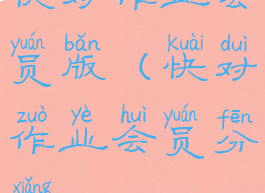 快对作业会
yuán bǎn Kuài duì
员版（快对
zuò yè huì yuán fēn
作业会员分
xiǎng